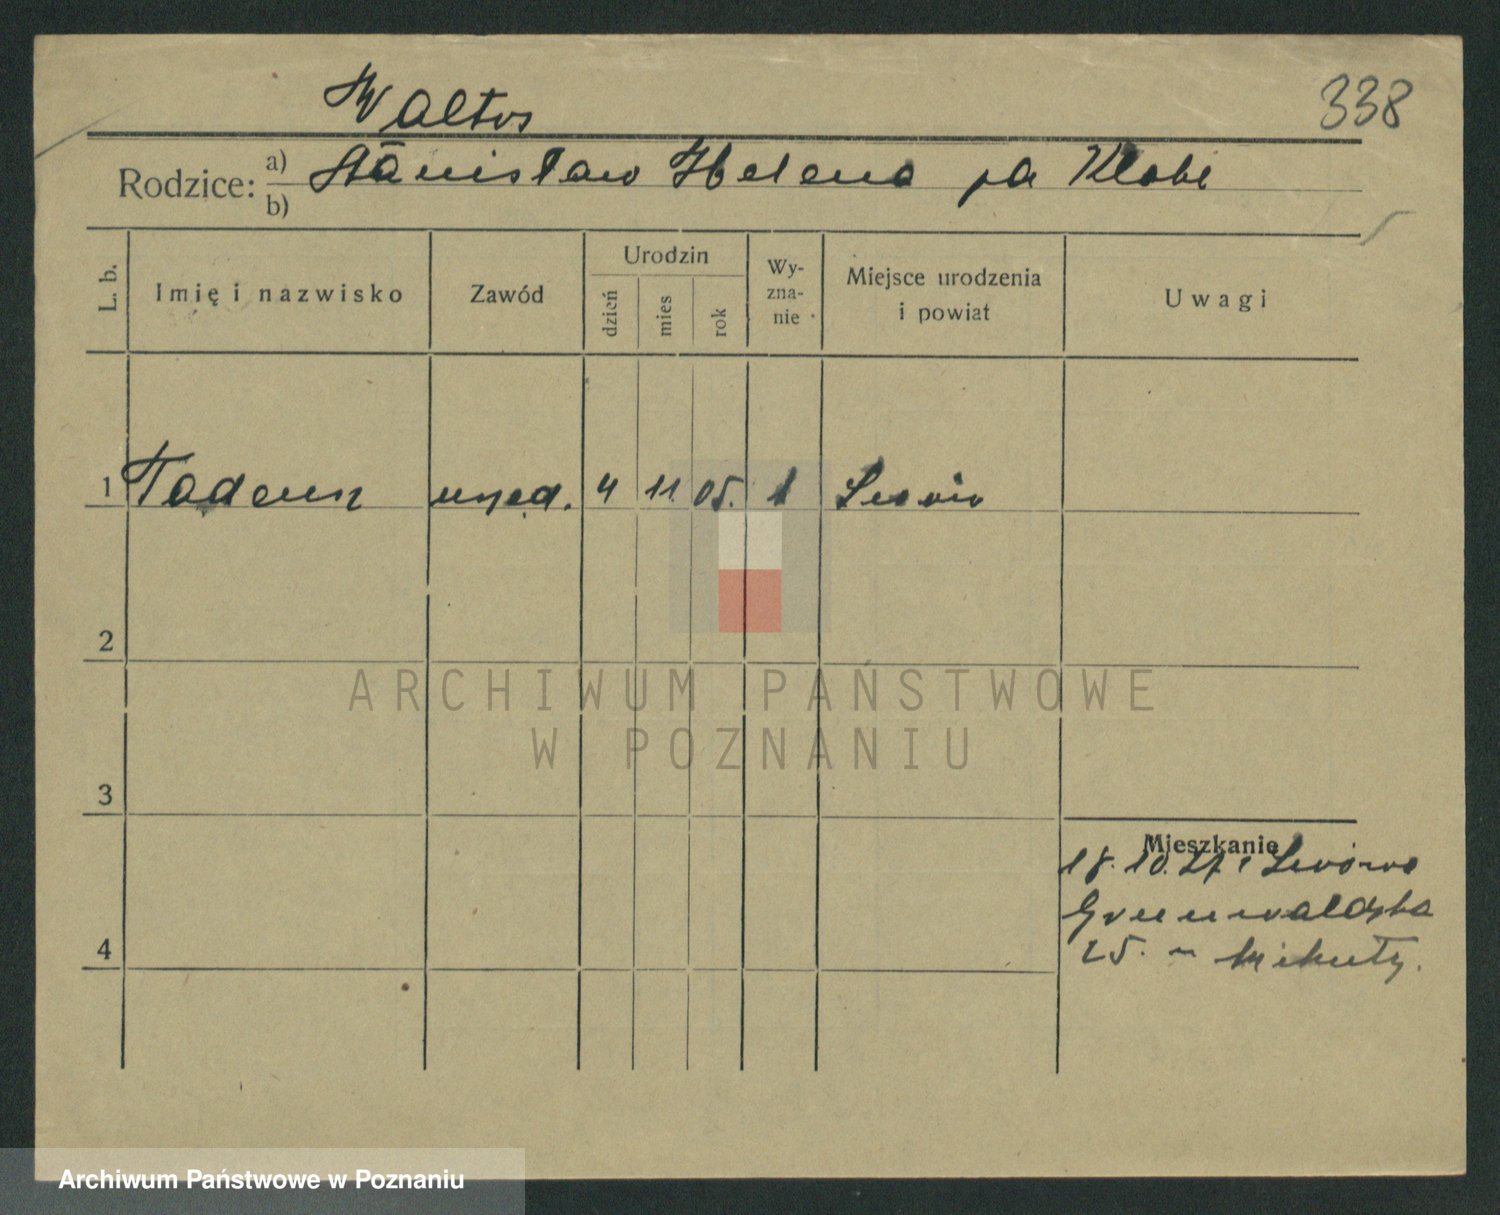 338
Waltos
Rodzice: a) Stanisław Helena
b)
L. b. Imię i nazwisko Zawód Urodzin dzień mies rok Wy-zna-nie Miejsce urodzenia i powiat Uwagi
1 Tadeusz urzęd. 4 11. 05. 1 Lwów
2
3
4
Mieszkanie
18. 10. 27 Lwowa
Grunwaldzka
25.
ARCHIWUM PAŃSTWOWE
W POZNANIU
Archiwum Państwowe w Poznaniu